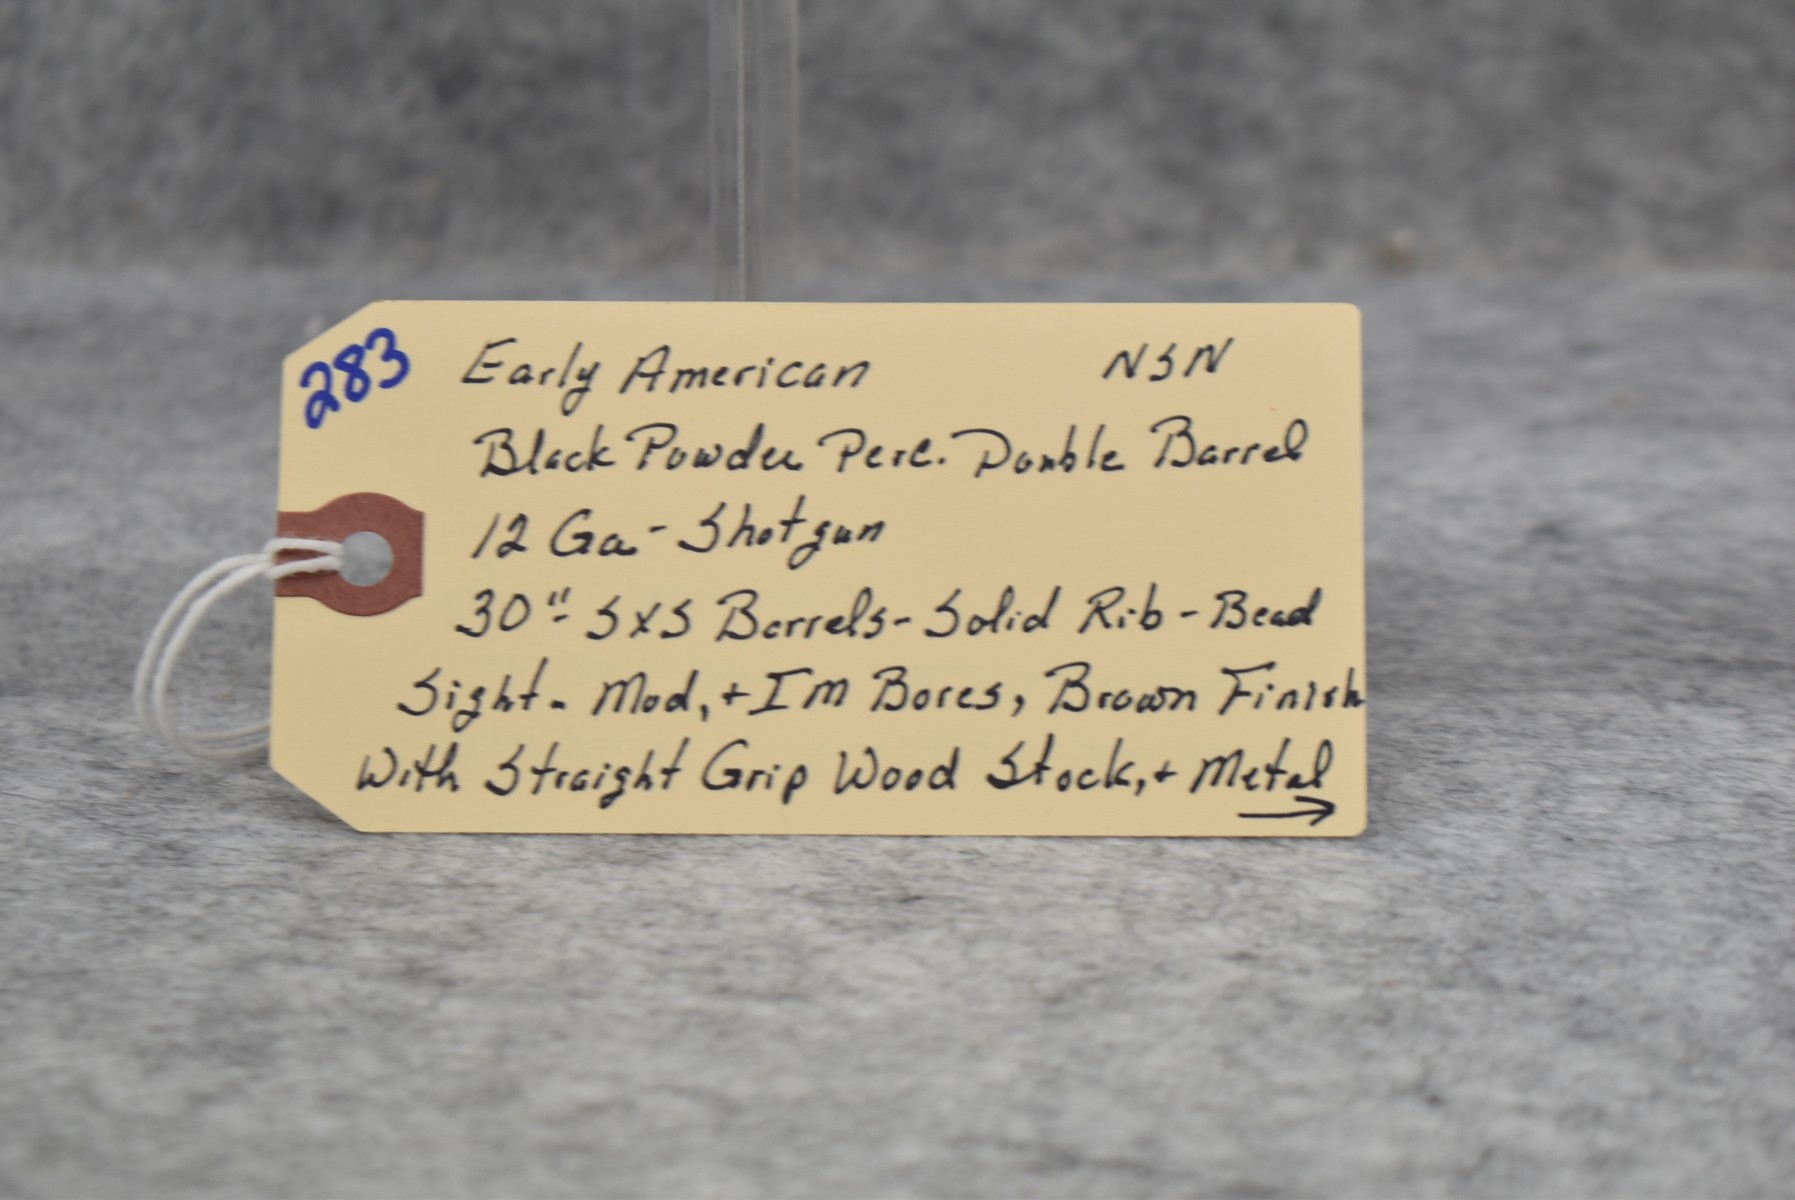 283
Early American NSN
Black Powder Perc. Double Barrel
12 Ga - Shotgun
30" - SXS Barrels - Solid Rib - Bead
Sight - Mod, + IM Bores, Brown Finish
With Straight Grip Wood Stock, + Metal
→